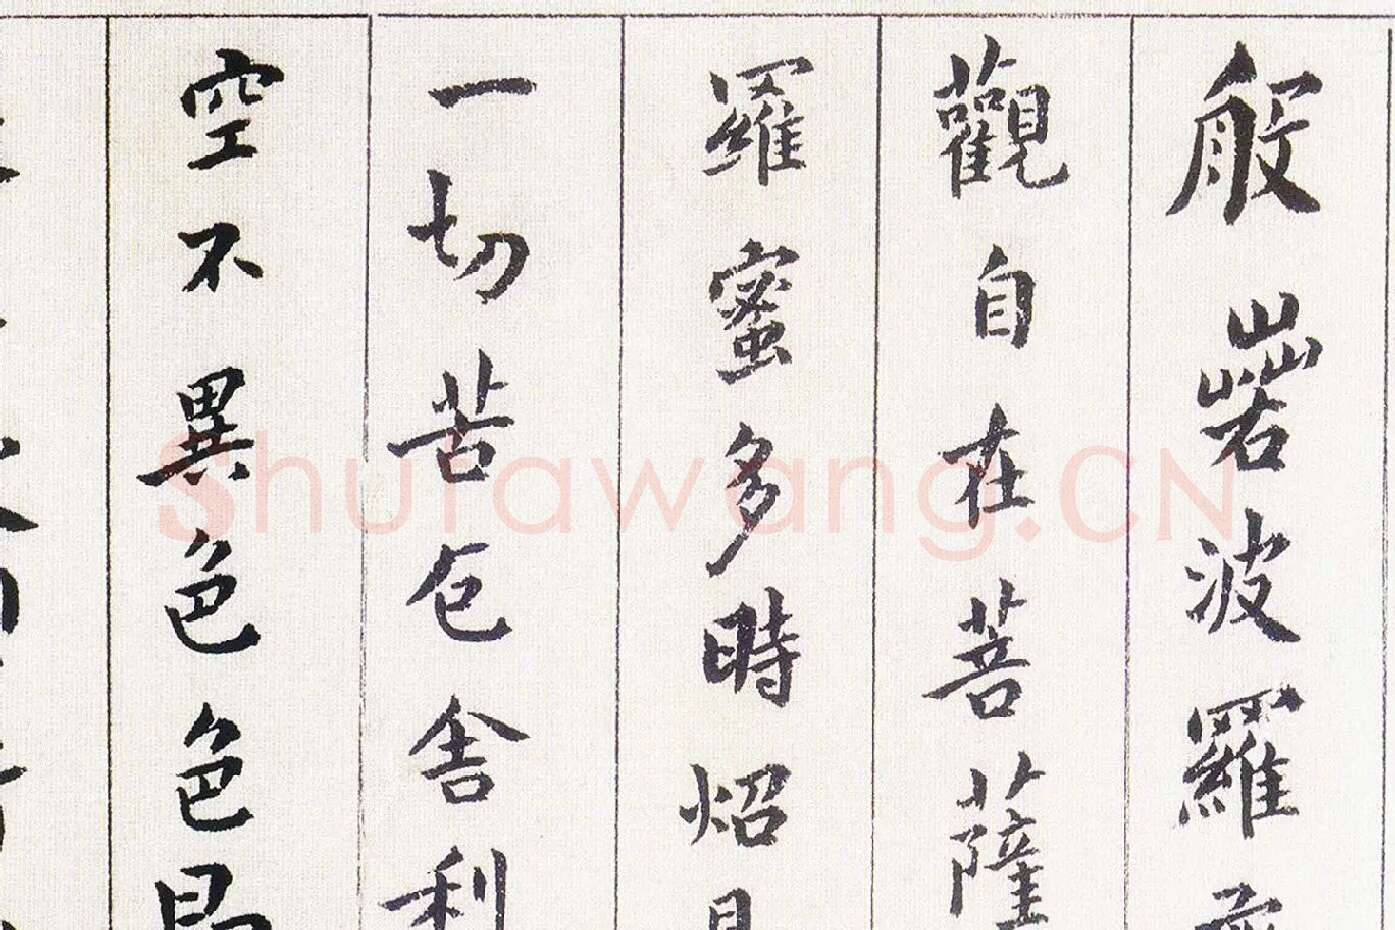 般若波羅
觀自在菩薩
羅蜜多時炤見
一切苦厄舍利
空不異色色即
Shufawang.CN